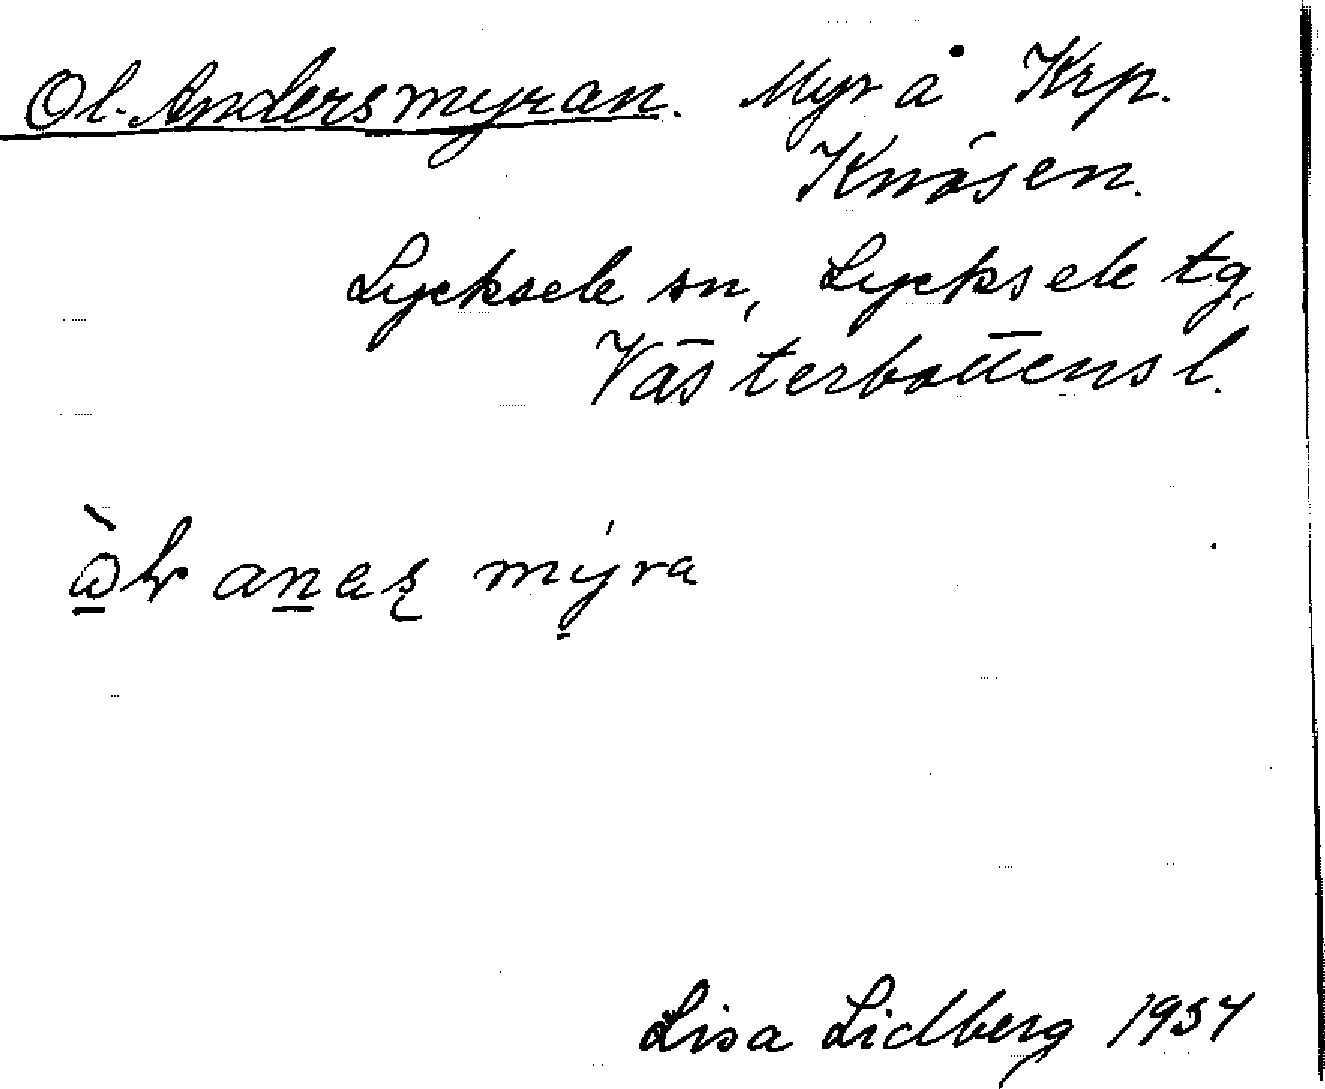 Ol-Andersmyran. Myr å Krp.
Knösen.
Lycksele sn, Lycksele tg,
Västerbottens l.
mýra
Lisa Lidberg 1934